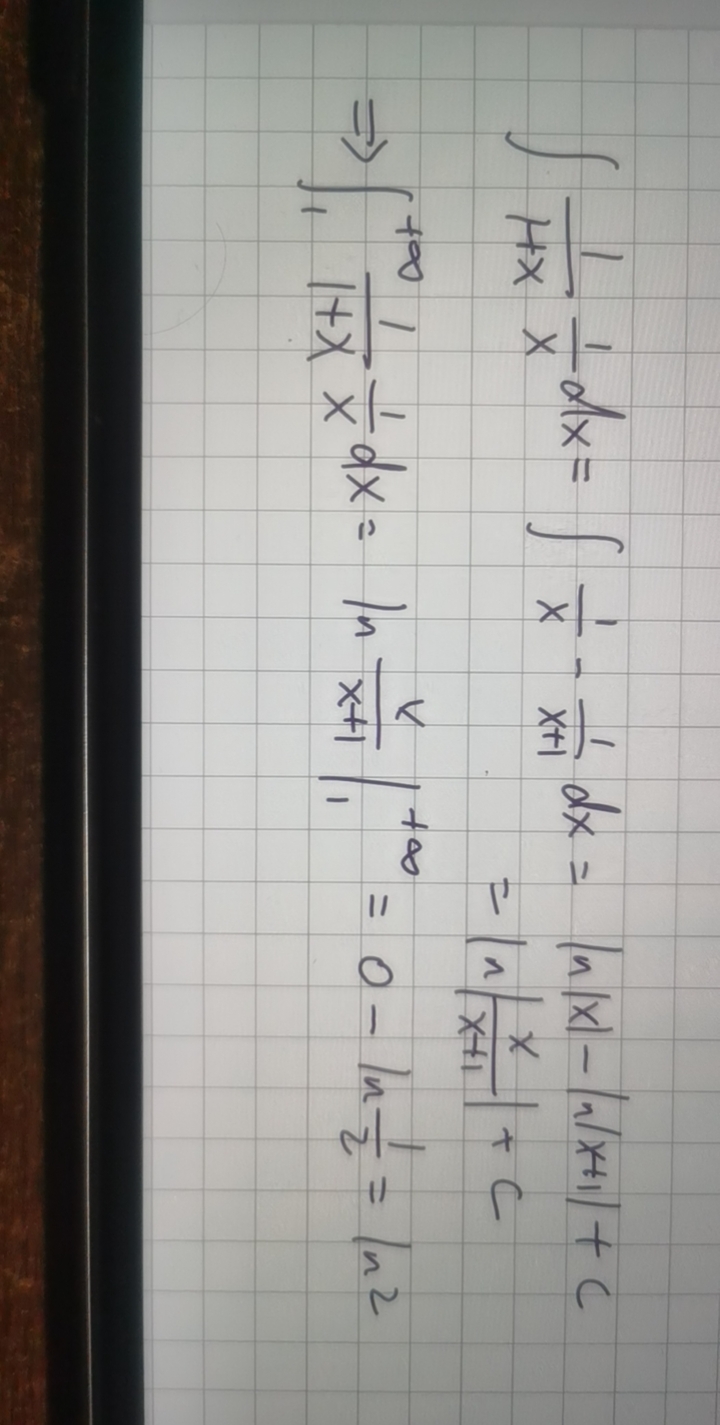 ∫ 1/(1+x) 1/x dx = ∫ 1/x - 1/(x+1) dx = ln|x| - ln|x+1| + C
= ln|x/(x+1)| + C
⇒ ∫₁^{+∞} 1/(1+x) 1/x dx = ln x/(x+1) |₁^{+∞} = 0 - ln 1/2 = ln 2